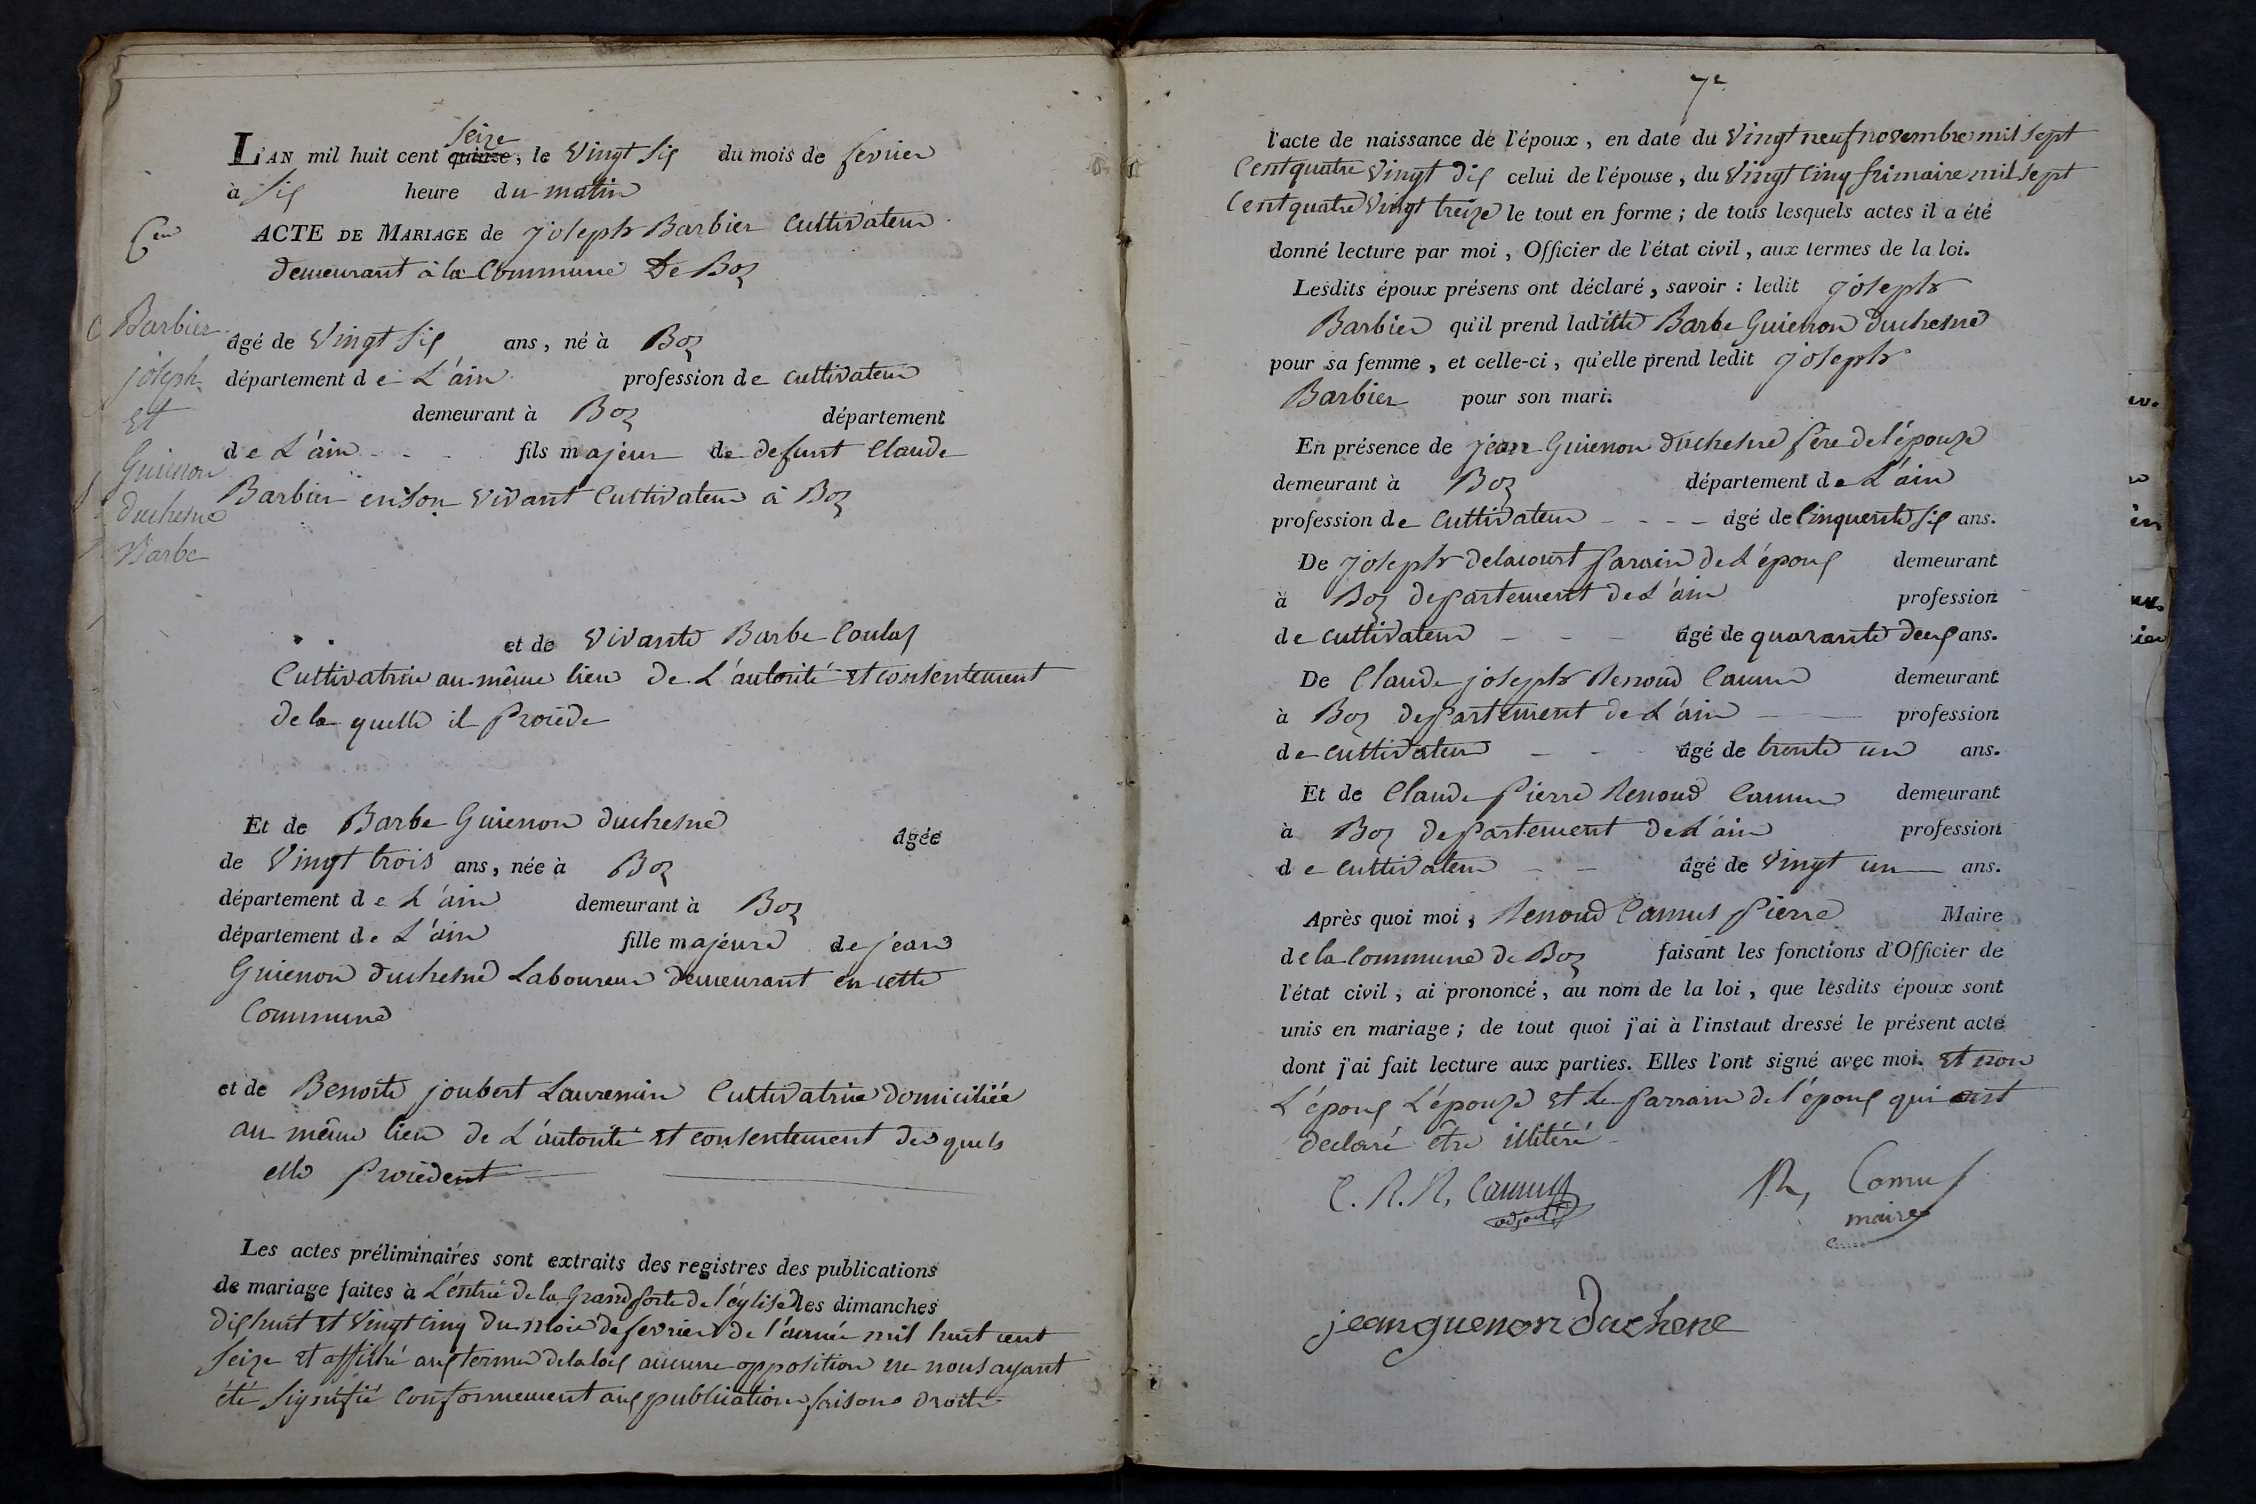 L'AN mil huit cent quinze seize, le Vingt Six du mois de fevrier
à Six heure du matin
6eme
ACTE DE MARIAGE de joseph Barbier Cultivateur
demeurant à la Commune De Boz
Barbier
joseph
Et
Guienon
duchesne
Barbe
âgé de Vingt Six ans, né à Boz
département de L'ain profession de cultivateur
demeurant à Boz département
de L'ain fils majeur de defunt Claude
Barbier en Son Vivant Cultivateur à Boz
et de Vivante Barbe Coulas
Cultivatrice au même lieu de L'autorité et consentement
de la quelle il procède
Et de Barbe Guienon duchesne âgée
de Vingt trois ans, née à Boz
département de L'ain demeurant à Boz
département de L'ain fille majeure de jean
Guienon duchesne Laboureur demeurant en cette
Commune
et de Benoite joubert Laurencin Cultivatrice domiciliée
au même lieu de L'autorité et consentement des quels
elle procèdent
Les actes préliminaires sont extraits des registres des publications
de mariage faites à L'entrée de la Grand porte de l'église les dimanches
dix huit et Vingt cinq du mois de fevrier de l'année mil huit cent
Seize et affiché aux terme de la loix aucune opposition ne nous ayant
été Signifié conformement aux publication faisons droite
7e
l'acte de naissance de l'époux, en date du Vingt neuf novembre mil sept
Cent quatre Vingt dix celui de l'épouse, du Vingt Cinq frimaire mil sept
Cent quatre Vingt treize le tout en forme; de tous lesquels actes il a été
donné lecture par moi, Officier de l'état civil, aux termes de la loi.
Lesdits époux présens ont déclaré, savoir : ledit joseph
Barbier qu'il prend ladite Barbe Guienon duchesne
pour sa femme, et celle-ci, qu'elle prend ledit joseph
Barbier pour son mari.
En présence de jean Guienon duchesne père de l'épouze
demeurant à Boz département de L'ain
profession de Cultivateur âgé de Cinquente Six ans.
De joseph delacourt parain de L'époux demeurant
à Boz departement de L'ain profession
de cultivateur âgé de quarante deux ans.
De Claude joseph Renoud Camus demeurant
à Boz departement de L'ain profession
de cultivateur âgé de trente un ans.
Et de Claude Pierre Renoud Camus demeurant
à Boz departement de L'ain profession
de cultivateur âgé de Vingt un ans.
Après quoi moi, Renoud Camus Pierre Maire
de la Commune de Boz faisant les fonctions d'Officier de
l'état civil, ai prononcé, au nom de la loi, que lesdits époux sont
unis en mariage; de tout quoi j'ai à l'instaut dressé le présent acte
dont j'ai fait lecture aux parties. Elles l'ont signé avec moi. et non
L'époux L'épouze et le parrain de l'époux qui ont
declaré être illitéré
C. R. R. Camus R, Camus
adjoint maire
jean guenon duchene